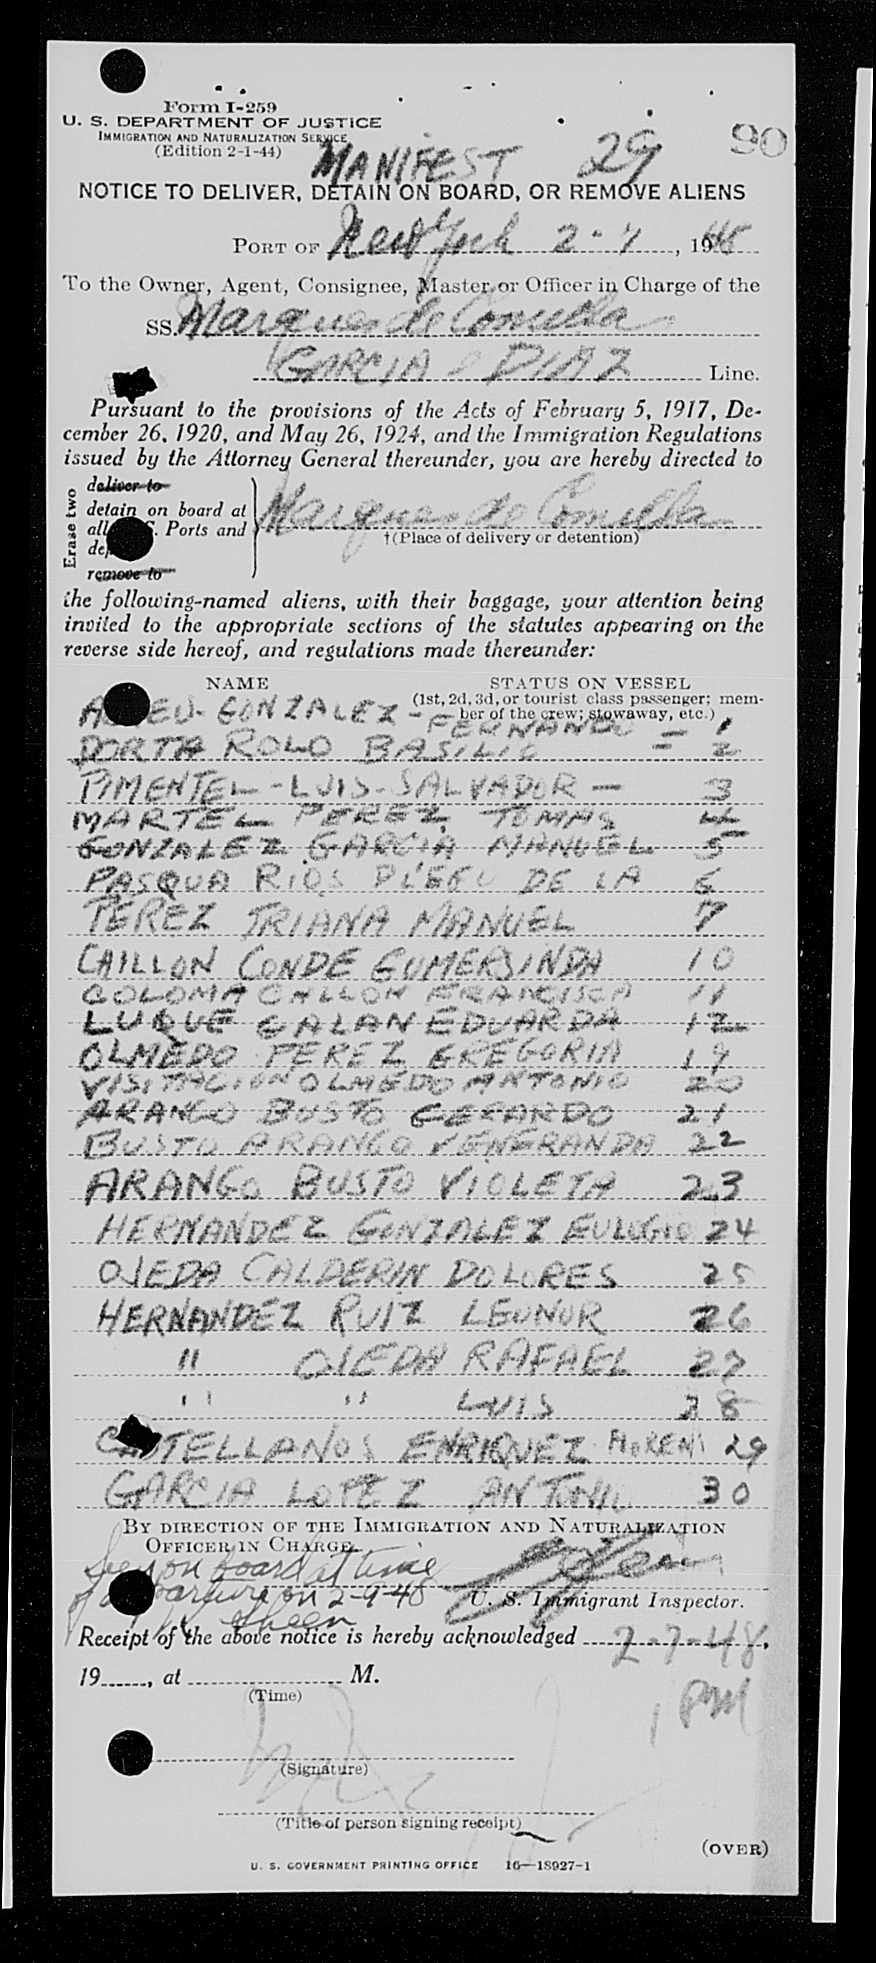 Form I-259
U. S. DEPARTMENT OF JUSTICE
IMMIGRATION AND NATURALIZATION SERVICE
(Edition 2-1-44)
MANIFEST 29 90
NOTICE TO DELIVER, DETAIN ON BOARD, OR REMOVE ALIENS
PORT OF New York 2-7, 1948
To the Owner, Agent, Consignee, Master or Officer in Charge of the
SS. Marques de Comillas
GARCIA & DIAZ Line.
Pursuant to the provisions of the Acts of February 5, 1917, De-
cember 26, 1920, and May 26, 1924, and the Immigration Regulations
issued by the Attorney General thereunder, you are hereby directed to
Erase two
deliver to
detain on board at
all S. Ports and
remove to
Marques de Comillas
†(Place of delivery or detention)
the following-named aliens, with their baggage, your attention being
invited to the appropriate sections of the statutes appearing on the
reverse side hereof, and regulations made thereunder:
NAME STATUS ON VESSEL
(1st, 2d, 3d, or tourist class passenger; mem-
ber of the crew; stowaway, etc.)
GONZALEZ - FERNANDO - 1
DORTA ROLO BASILIO = 2
PIMENTEL - LUIS - SALVADOR - 3
MARTEL PEREZ TOMAS 4
GONZALEZ GARCIA MANUEL 5
PASQUA RIOS DIEGO DE LA 6
PEREZ TRIANA MANUEL 7
CHILLON CONDE GUMERSINDA 10
COLOMA CHILLON FRANCISCA 11
LUQUE GALAN EDUARDA 12
OLMEDO PEREZ GREGORIA 19
VISITACION OLMEDO ANTONIO 20
ARANGO BUSTO GERARDO 21
BUSTO ARANGO VENERANDA 22
ARANGO BUSTO VIOLETA 23
HERNANDEZ GONZALEZ EULOGIO 24
OJEDA CALDERIN DOLORES 25
HERNANDEZ RUIZ LEONOR 26
" OJEDA RAFAEL 27
" " LUIS 28
CASTELLANOS ENRIQUEZ 29
GARCIA LOPEZ ANTONIO 30
BY DIRECTION OF THE IMMIGRATION AND NATURALIZATION
OFFICER IN CHARGE.
on board at time
of departure on 2-9-48
U. S. Immigrant Inspector.
Receipt of the above notice is hereby acknowledged 2-7-48,
19......, at ...................... M.
(Time)
1 PM
(Signature)
(Title of person signing receipt)
(OVER)
U. S. GOVERNMENT PRINTING OFFICE 16—18927-1